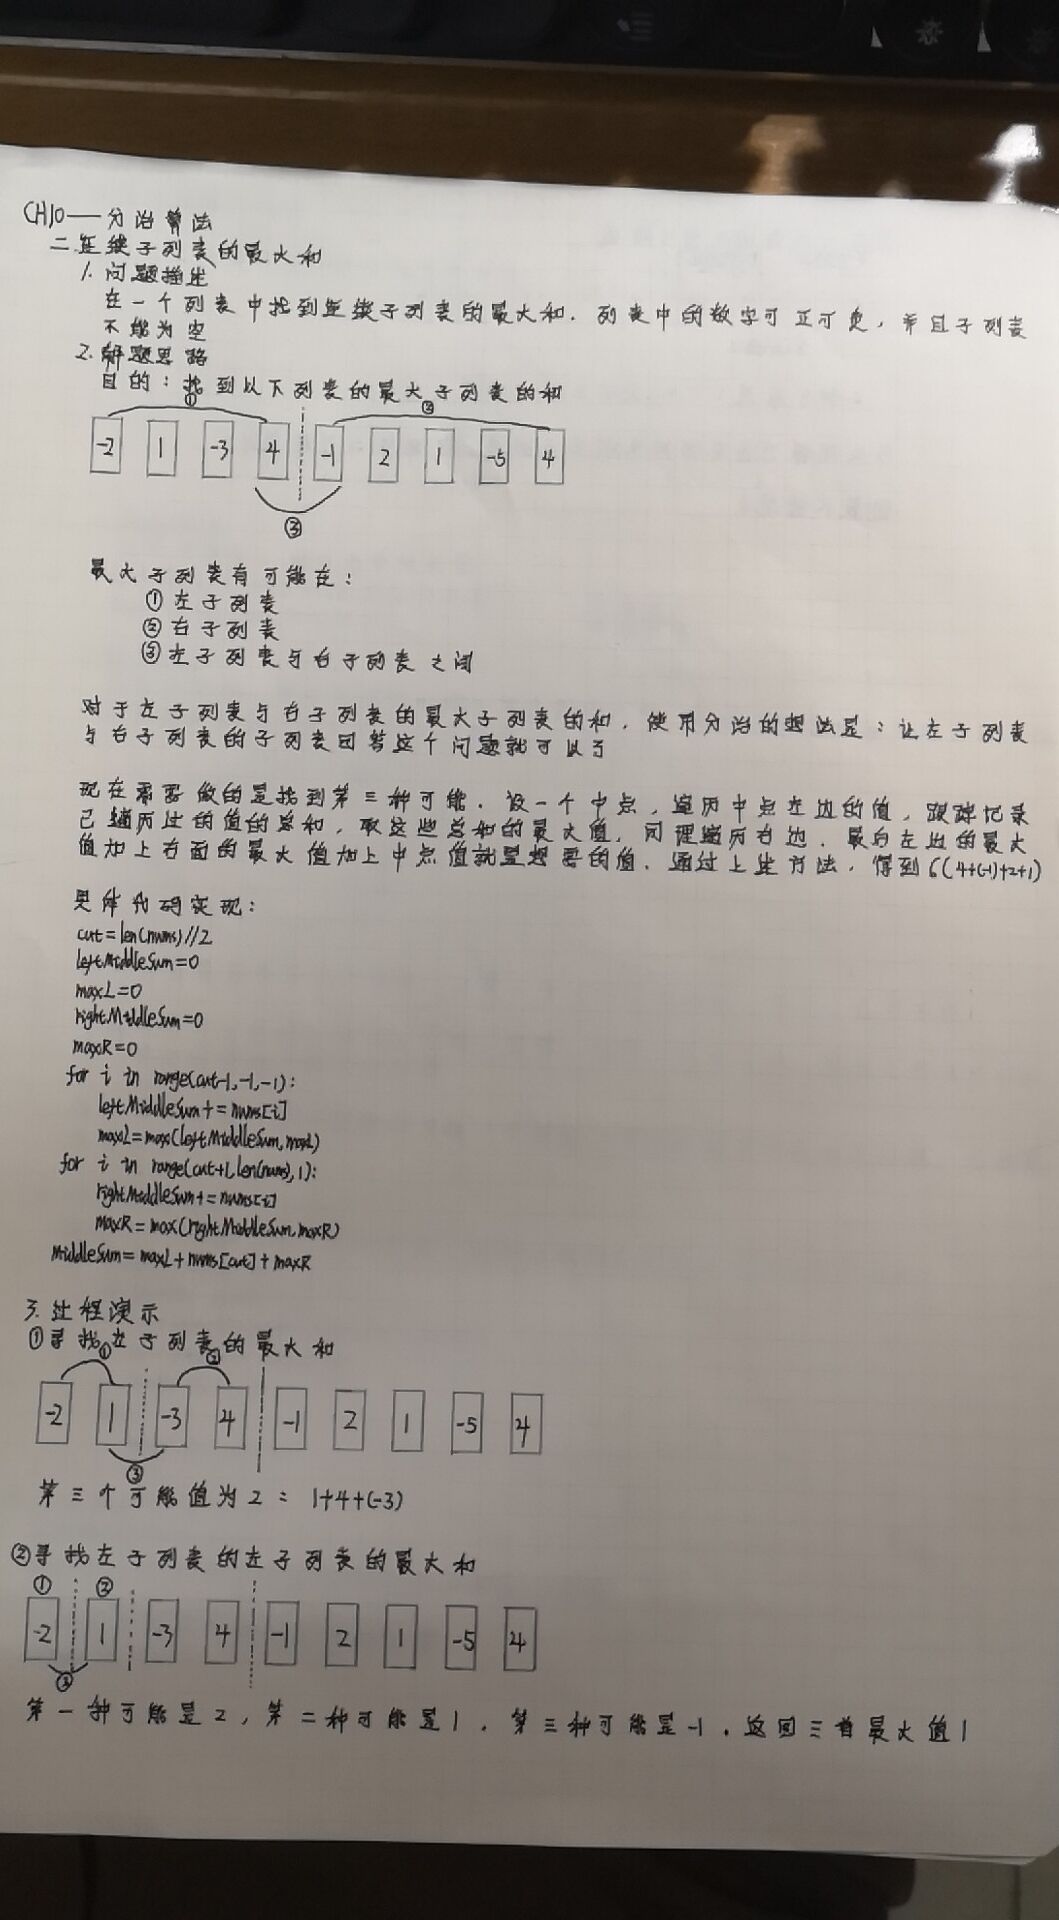 CH10——分治算法
二.连续子列表的最大和
1.问题描述
在一个列表中找到连续子列表的最大和.列表中的数字可正可负,并且子列表
不能为空
2.解题思路
目的:找到以下列表的最大子列表的和
① ②
-2 1 -3 4 -1 2 1 -5 4
③
最大子列表有可能在:
①左子列表
②右子列表
③左子列表与右子列表之间
对于左子列表与右子列表的最大子列表的和,使用分治的想法是:让左子列表
与右子列表的子列表回答这个问题就可以了
现在需要做的是找到第三种可能.设一个中点,遍历中点左边的值,跟踪记录
已遍历过的值的总和,取这些总和的最大值.同理遍历右边.最后左边的最大
值加上右面的最大值加上中点值就是想要的值.通过上述方法,得到6(4+(-1)+2+1)
具体代码实现:
cut=len(nums)//2
leftMiddleSum=0
maxL=0
rightMiddleSum=0
maxR=0
for i in range(cut-1,-1,-1):
leftMiddleSum+=nums[i]
maxL=max(leftMiddleSum,maxL)
for i in range(cut+1,len(nums),1):
rightMiddleSum+=nums[i]
maxR=max(rightMiddleSum,maxR)
MiddleSum=maxL+nums[cut]+maxR
3.过程演示
①寻找左子列表的最大和
① ②
-2 1 -3 4 -1 2 1 -5 4
③
第三个可能值为2=1+4+(-3)
②寻找左子列表的左子列表的最大和
① ②
-2 1 -3 4 -1 2 1 -5 4
③
第一种可能是2,第二种可能是1.第三种可能是-1.返回三者最大值1